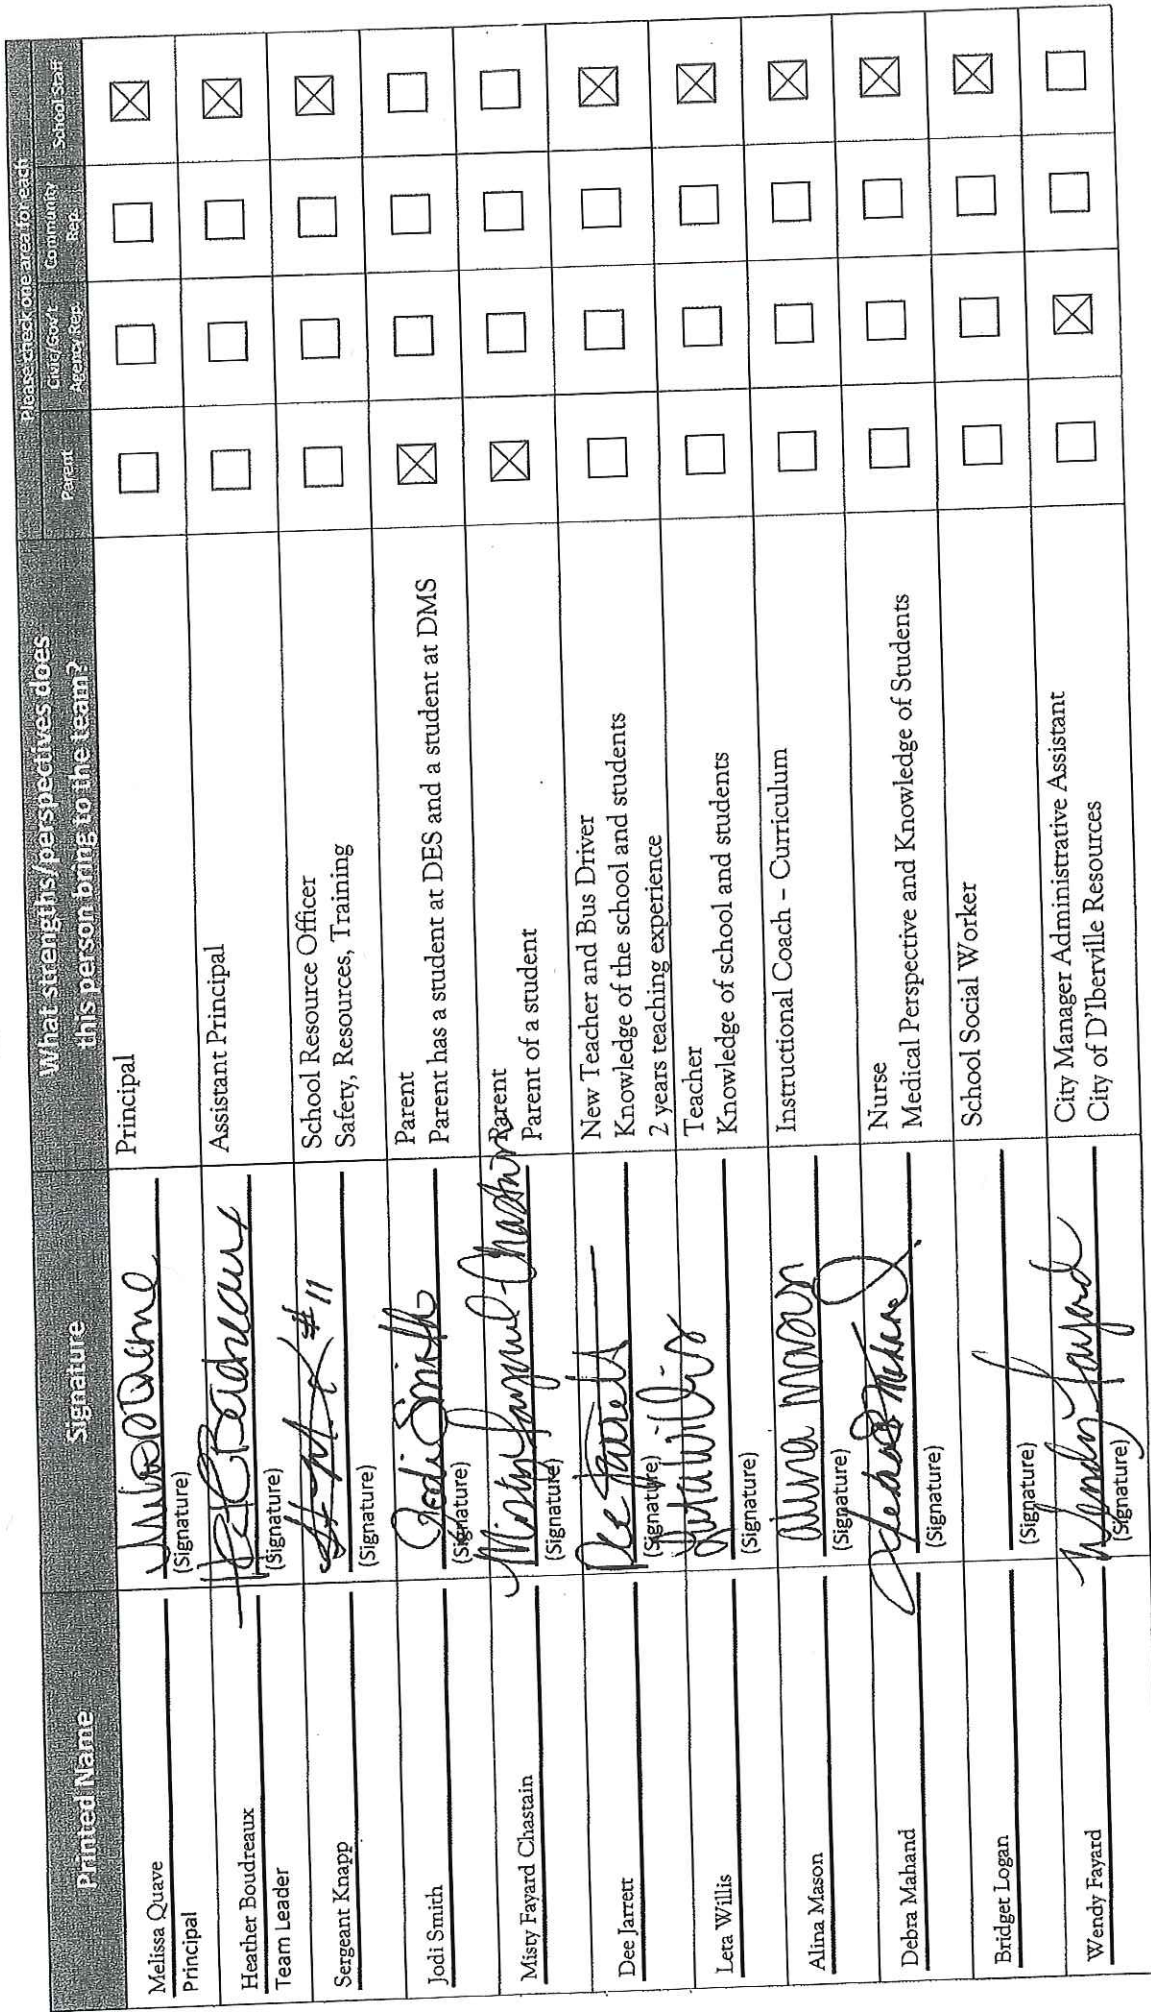 Please check one area for each
Printed Name
Signature
What strengths/perspectives does
this person bring to the team?
Parent
Civic/Gov't.
Agency Rep.
Community
Rep.
School Staff
Melissa Quave
Principal
(Signature)
Principal
☐ ☐ ☐ ☒
Heather Boudreaux
Team Leader
(Signature)
Assistant Principal
☐ ☐ ☐ ☒
Sergeant Knapp
#11
(Signature)
School Resource Officer
Safety, Resources, Training
☐ ☐ ☐ ☒
Jodi Smith
Jodi Smith
(Signature)
Parent
Parent has a student at DES and a student at DMS
☒ ☐ ☐ ☐
Misty Fayard Chastain
Misty Fayard Chastain
(Signature)
Parent
Parent of a student
☒ ☐ ☐ ☐
Dee Jarrett
Dee Jarrett
(Signature)
New Teacher and Bus Driver
Knowledge of the school and students
2 years teaching experience
☐ ☐ ☐ ☒
Leta Willis
Leta Willis
(Signature)
Teacher
Knowledge of school and students
☐ ☐ ☐ ☒
Alina Mason
Alina Mason
(Signature)
Instructional Coach – Curriculum
☐ ☐ ☐ ☒
Debra Mahand
Debra Mahand
(Signature)
Nurse
Medical Perspective and Knowledge of Students
☐ ☐ ☐ ☒
Bridget Logan
(Signature)
School Social Worker
☐ ☐ ☐ ☒
Wendy Fayard
Wendy Fayard
(Signature)
City Manager Administrative Assistant
City of D'Iberville Resources
☐ ☒ ☐ ☐